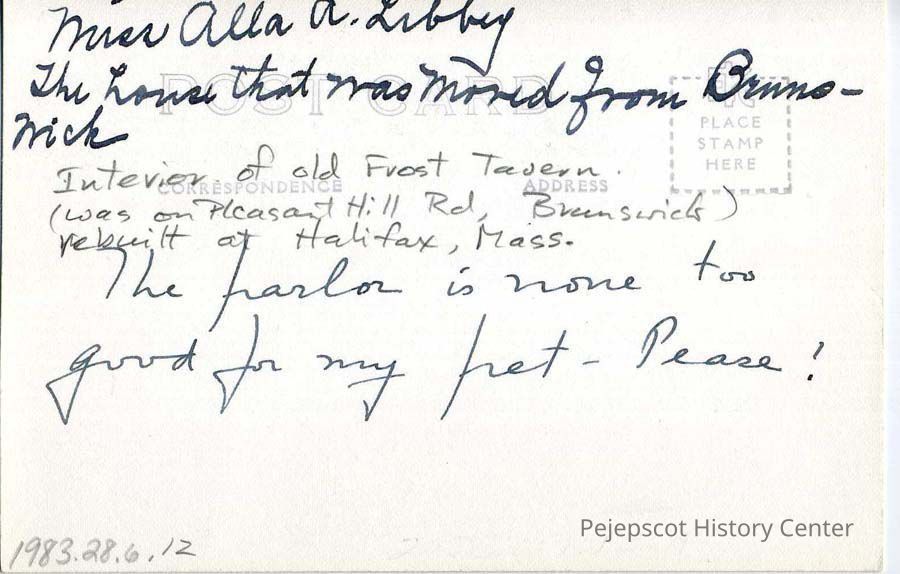 Miss Alla A. Libbey
The house that was moved from Bruns-
wick
POST CARD
PLACE
STAMP
HERE
Interior of old Frost Tavern.
CORRESPONDENCE
ADDRESS
(was on Pleasant Hill Rd, Brunswick)
rebuilt at Halifax, Mass.
The parlor is none too
good for my pet - Pease!
Pejepscot History Center
1983.28.6.12